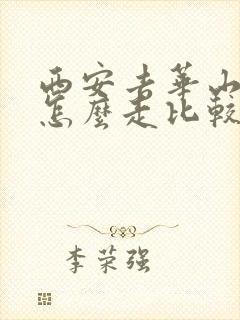 西安去华山
怎麼走比較
李荣强